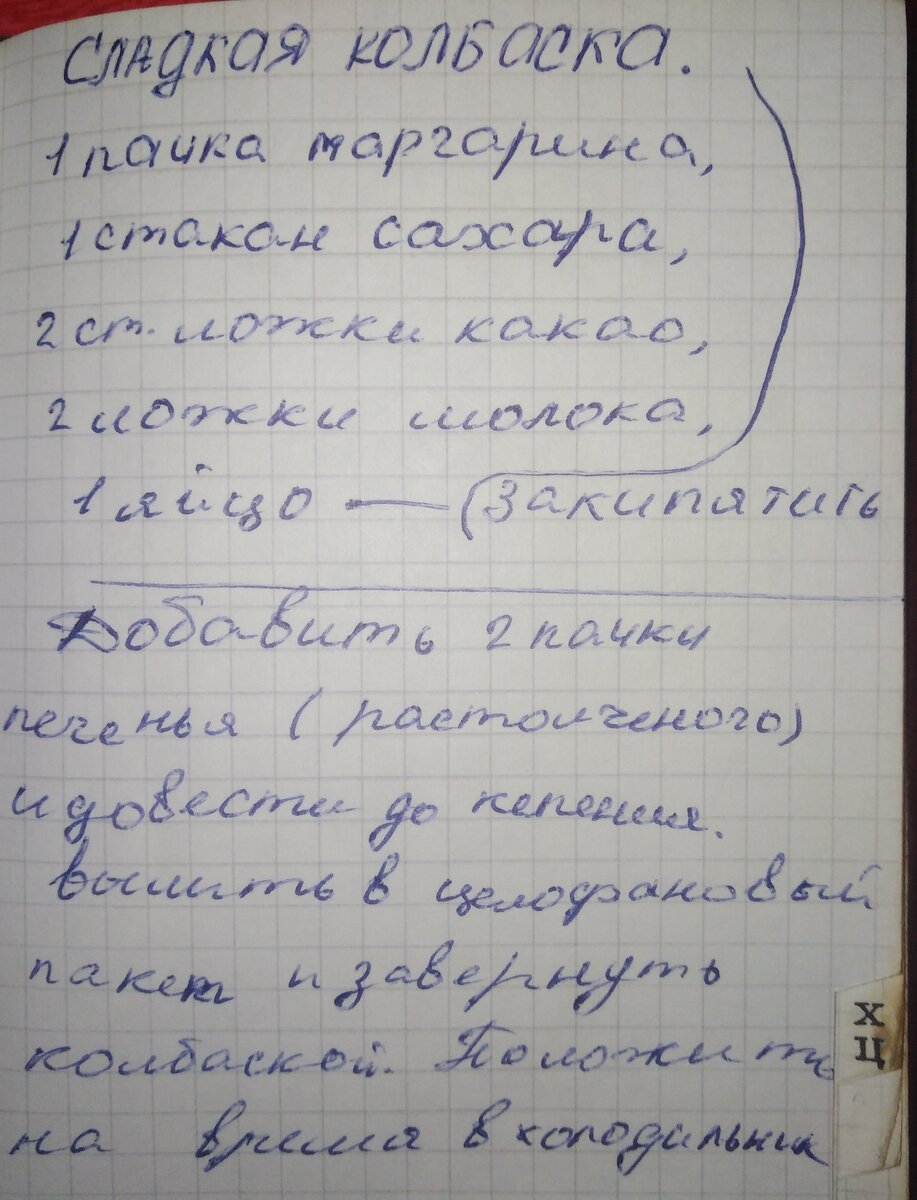 Сладкая колбаска.
1 пачка маргарина,
1 стакан сахара,
2 ст. ложки какао,
2 ложки молока,
1 яйцо — (закипятить
Добавить 2 пачки
печенья (растолченого)
и довести до кепения.
вылить в целофановый
пакет и завернуть
колбаской. Положить
на время в холодильник
Х
Ц